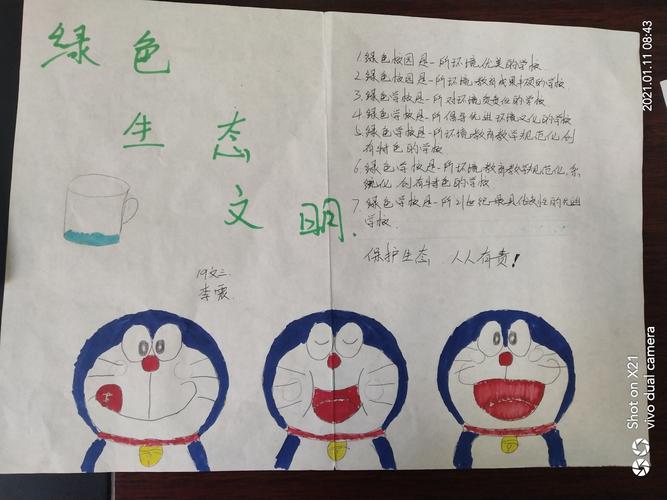 绿色
生态
文明.
19文三
李震
1.绿色校园是一所环境优美的学校
2.绿色校园是一所环境教育成果丰硕的学校
3.绿色学校是一所对环境负责任的学校
4.绿色学校是一所倡导优进环境文化的学校
5.绿色学校是一所环境教育教学规范化,创
有特色的学校
6.绿色学校是一所环境教育教学规范化,系
统化,创有特色的学校
7.绿色学校是一所21世纪最具代表性的先进
学校.
保护生态 人人有责!
2021.01.11 08:43
Shot on X21
vivo dual camera